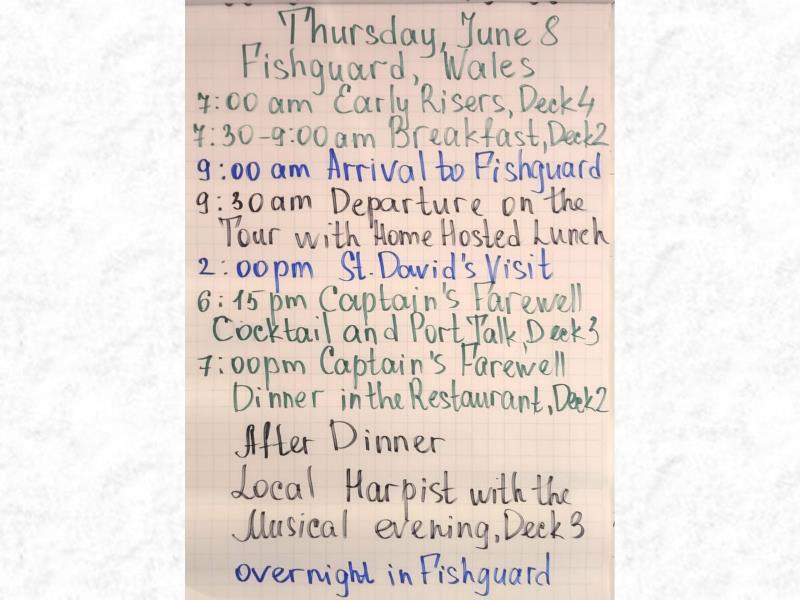 Thursday, June 8
Fishguard, Wales
7:00 am Early Risers, Deck 4
7:30-9:00 am Breakfast, Deck 2
9:00 am Arrival to Fishguard
9:30 am Departure on the
Tour with Home Hosted Lunch
2:00pm St. David's Visit
6:15 pm Captain's Farewell
Cocktail and Port Talk, Deck 3
7:00pm Captain's Farewell
Dinner in the Restaurant, Deck 2
After Dinner
Local Harpist with the
Musical evening, Deck 3
overnight in Fishguard